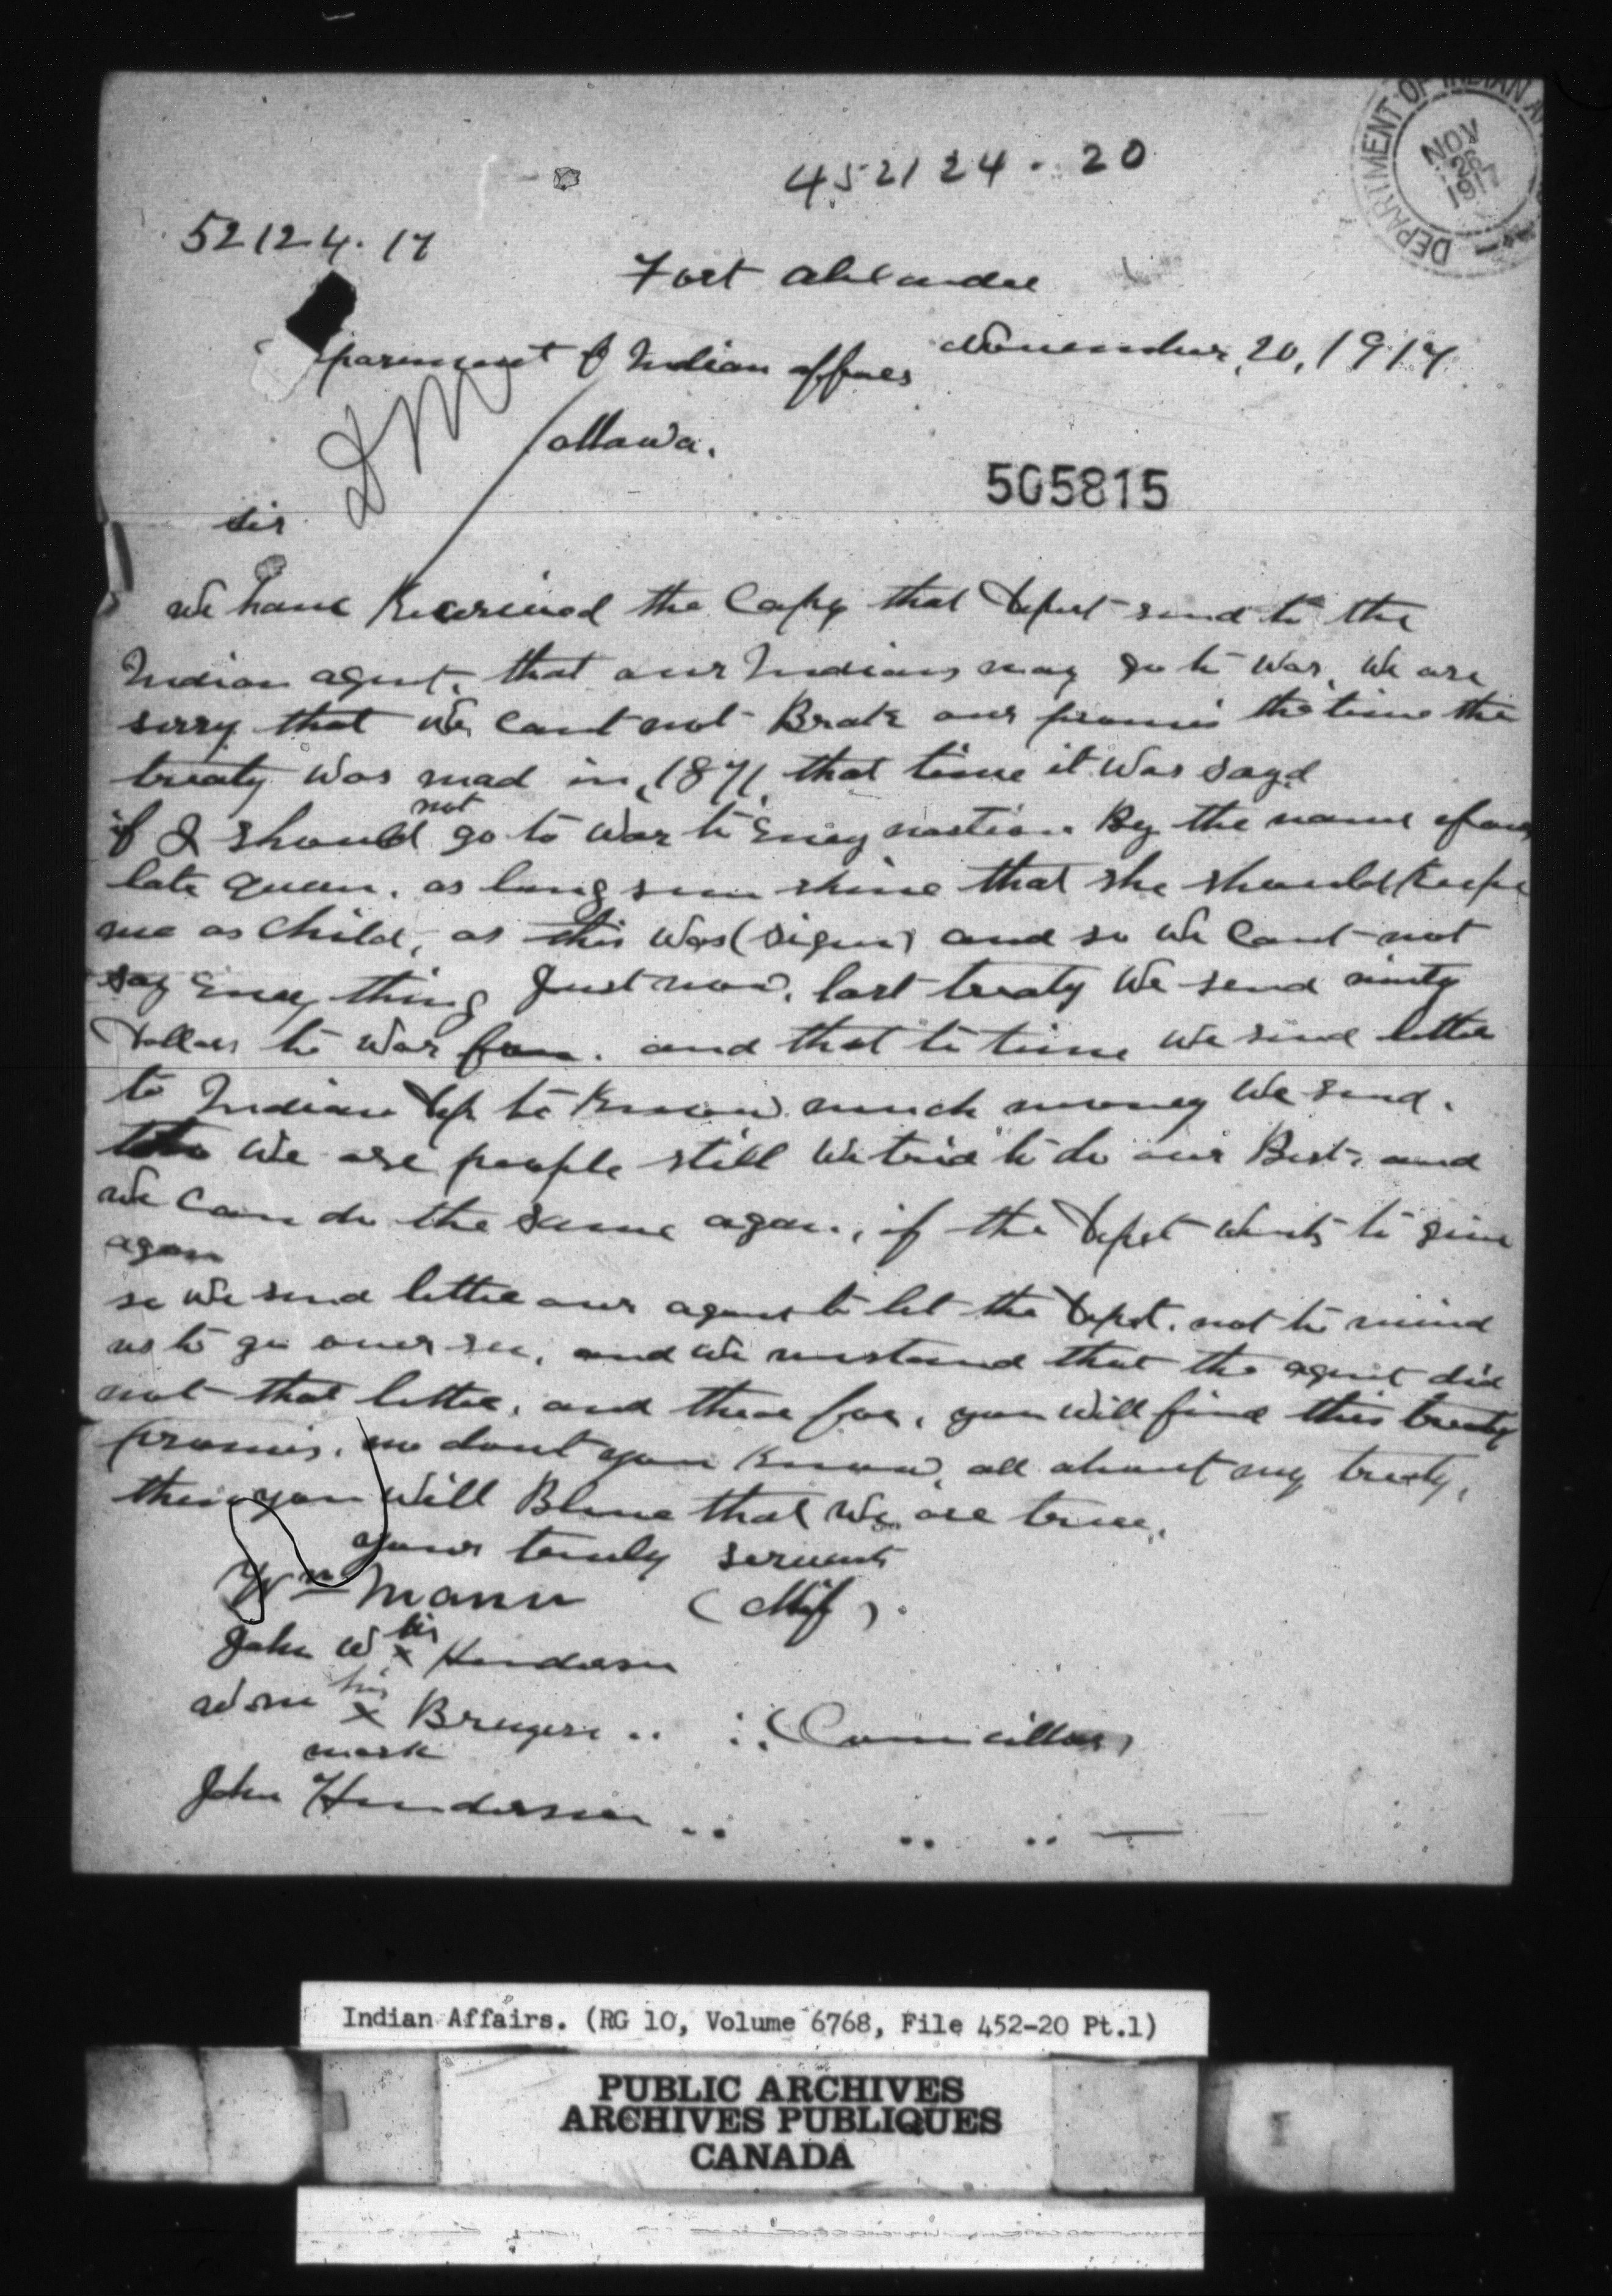 452124 . 20
DEPARTMENT OF INDIAN
NOV 26 1917
52124.17
Fort alexander
November, 20, 1917
parement of Indian affaes
Ottawa.
505815
sir
we have Received the Copy that Dept send to the
Indian agent, that our Indians may go to war, we are
sorry that we cant not Brake our promis the time the
treaty was mad in, 1871, that time it was sayd
not
if I should go to war to Eney nastion By the name of our
late queen. as long sun shine that she should keepe
me as child, as this was (sign) and so we cant not
say Eney thing Just now, last treaty we send ninty
Dollars to war fun. and that to time we send letter
to Indian Dep to know much money we send.
we are people still we trid to do our Best, and
we can do the same agan, if the Dept wints to give
agan
so we send letter our agent to let the Dept. not to mind
us to go over see, and we unstand that the agent did
not that letter, and there for, you will find this treaty
promis, dont you know, all about my treaty,
then you will Bleve that we are true,
your truly servents
Wm Mann (Chif).
John W his x Henderson
Wm his x Bruyere .. .. (Councillors)
mark
John Henderson .. .. .. —
Indian Affairs. (RG 10, Volume 6768, File 452-20 Pt.1)
PUBLIC ARCHIVES
ARCHIVES PUBLIQUES
CANADA